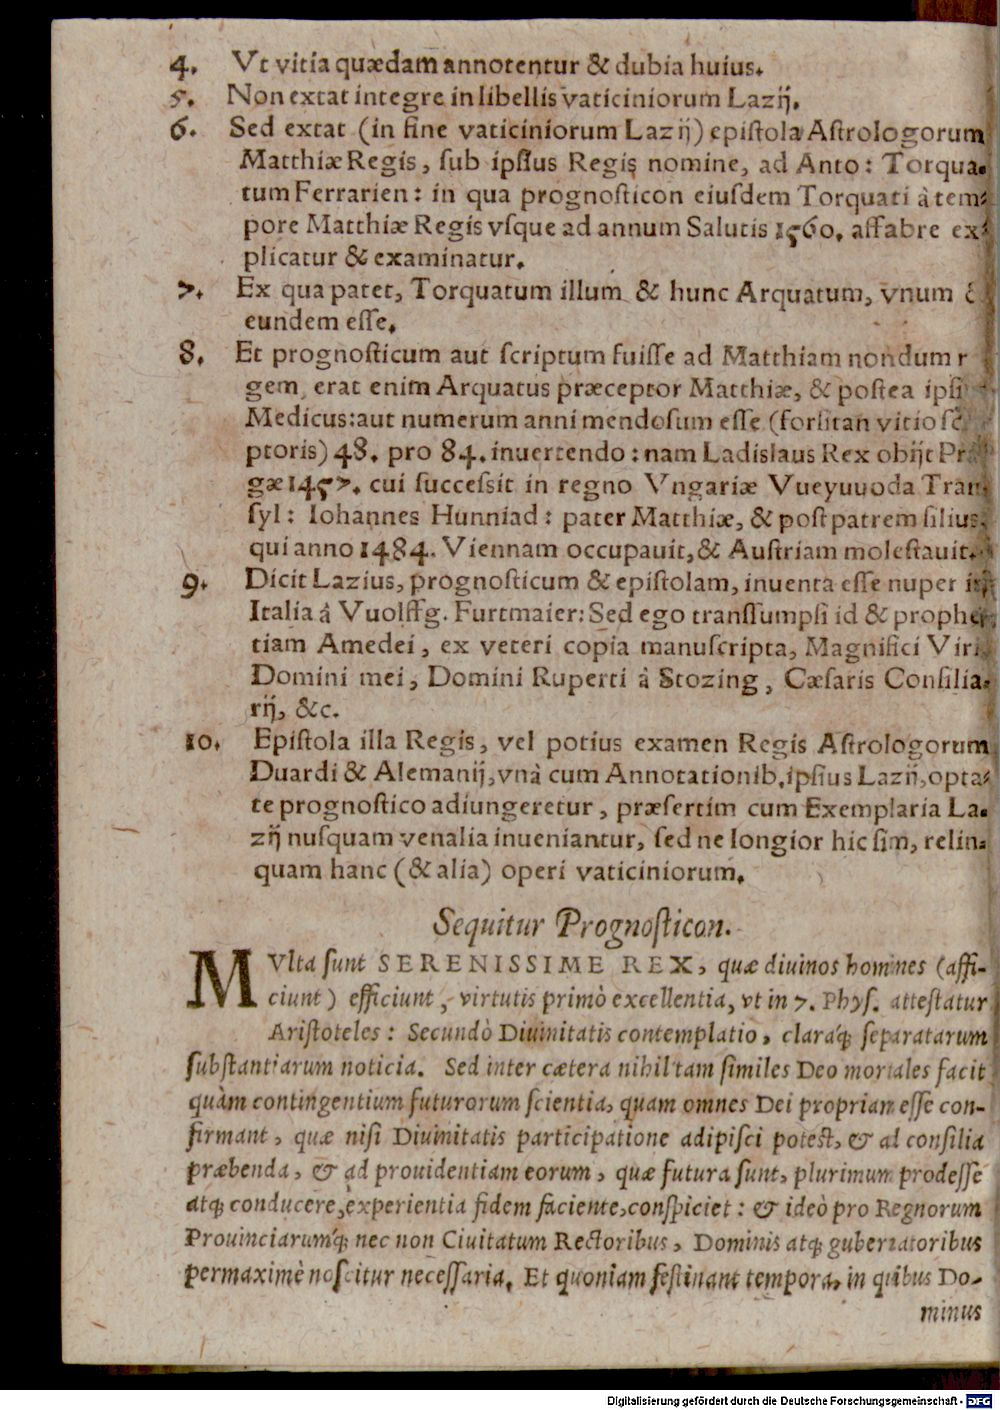 4. Vt vitia quædam annotentur & dubia huius.
5. Non extat integre in libellis vaticiniorum Lazij.
6. Sed extat (in fine vaticiniorum Lazij) epistola Astrologorum
Matthiæ Regis, sub ipsius Regis nomine, ad Anto: Torqua-
tum Ferrarien: in qua prognosticon eiusdem Torquati à tem-
pore Matthiæ Regis vsque ad annum Salutis 1560. affabre ex-
plicatur & examinatur.
7. Ex qua patet, Torquatum illum & hunc Arquatum, vnum &
eundem esse.
8. Et prognosticum aut scriptum fuisse ad Matthiam nondum
gem, erat enim Arquatus præceptor Matthiæ, & postea ipsi
Medicus: aut numerum anni mendosum esse (forsitan vitio
ptoris) 48. pro 84. inuertendo: nam Ladislaus Rex obijt Pra
gæ 1457. cui successit in regno Vngariæ Vueyuuoda Tran-
syl: Iohannes Hunniad: pater Matthiæ, & post patrem filius,
qui anno 1484. Viennam occupauit, & Austriam molestauit.
9. Dicit Lazius, prognosticum & epistolam, inuenta esse nuper in
Italia á Vuolffg. Furtmaier: Sed ego transsumpsi id & prophe-
tiam Amedei, ex veteri copia manuscripta, Magnifici Viri,
Domini mei, Domini Ruperti à Stozing, Cæsaris Consilia-
rij, &c.
10. Epistola illa Regis, vel potius examen Regis Astrologorum
Duardi & Alemanij, vnà cum Annotationib. ipsius Lazij, opta-
te prognostico adiungeretur, præsertim cum Exemplaria La-
zij nusquam venalia inueniantur, sed ne longior hic sim, relin-
quam hanc (& alia) operi vaticiniorum.
Sequitur Prognosticon.
MVlta sunt SERENISSIME REX, quæ diuinos homines (affi-
ciunt) efficiunt, virtutis primò excellentia, vt in 7. Phys. attestatur
Aristoteles: Secundò Diuinitatis contemplatio, claraq́; separatarum
substantiarum noticia. Sed inter cætera nihil tam similes Deo mortales facit
quàm contingentium futurorum scientia, quam omnes Dei propriam esse con-
firmant, quæ nisi Diuinitatis participatione adipisci potest, & ad consilia
præbenda, & ad prouidentiam eorum, quæ futura sunt, plurimum prodesse
atq; conducere, experientia fidem faciente, conspiciet: & ideò pro Regnorum
Prouinciarumq́; nec non Ciuitatum Rectoribus, Dominis atq; gubernatoribus
permaximè noscitur necessaria. Et quoniam festinant tempora, in quibus Do-
minus
Digitalisierung gefördert durch die Deutsche Forschungsgemeinschaft - DFG